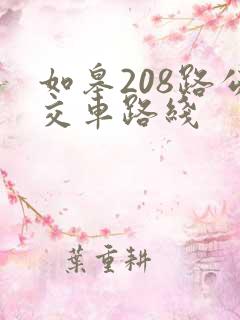 如皋208路公
交車路綫
葉重耕